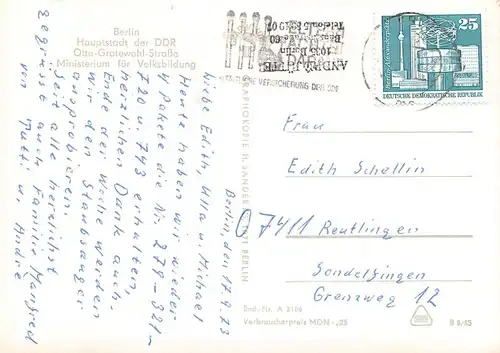 Berlin
Hauptstadt der DDR
Otto-Grotewohl-Straße
Ministerium für Volksbildung
Berlin, den 17.9.73
Liebe Edith, Ulla u. Michael
Heute haben wir wieder
4 Pakete die Nr. 279 - 321 -
720 u. 743 erhalten,
herzlichen Dank auch.
Ende der Woche werden
wir den Staubsauger
ausprobieren.
Seit alle herzlichst
gegrüßt auch Familie Manfred
von Mutti u. André
ANDRÉ
1035 Berlin
Telefon
VERSICHERUNG DER DDR
25
DEUTSCHE DEMOKRATISCHE REPUBLIK
GRAPHOKOPIE H. SANDER BERLIN
Frau
Edith Schellin
07411 Reutlingen
Sondelfingen
Grenzweg 12
Best.-Nr. A 2106
Verbraucherpreis MDN -,25
B 8/65